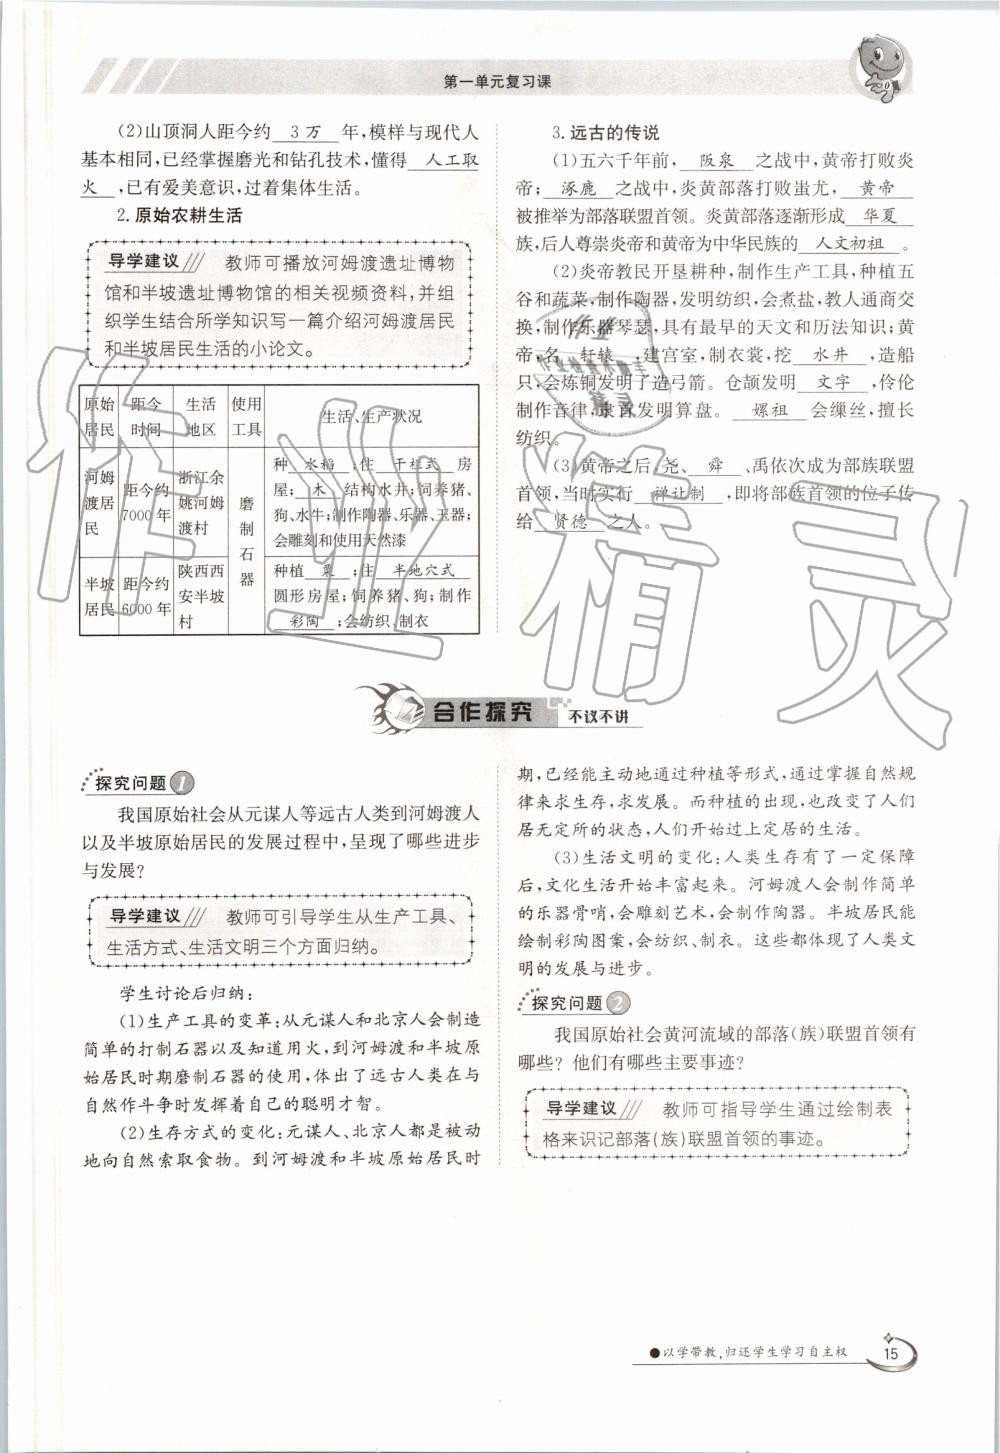 第一单元复习课
(2)山顶洞人距今约 3万 年,模样与现代人
基本相同,已经掌握磨光和钻孔技术,懂得 人工取
火 ,已有爱美意识,过着集体生活。
2. 原始农耕生活
导学建议 教师可播放河姆渡遗址博物
馆和半坡遗址博物馆的相关视频资料,并组
织学生结合所学知识写一篇介绍河姆渡居民
和半坡居民生活的小论文。
原始居民 距今时间 生活地区 使用工具 生活、生产状况
河姆渡居民 距今约7000年 浙江余姚河姆渡村 磨制石器
种 水稻 ;住 干栏式 房
屋; 木 结构水井;饲养猪、
狗、水牛;制作陶器、乐器、玉器;
会雕刻和使用天然漆
半坡居民 距今约6000年 陕西西安半坡村
种植 粟 ;住 半地穴式
圆形房屋;饲养猪、狗;制作
彩陶 ;会纺织、制衣
3. 远古的传说
(1)五六千年前, 阪泉 之战中,黄帝打败炎
帝; 涿鹿 之战中,炎黄部落打败蚩尤, 黄帝
被推举为部落联盟首领。炎黄部落逐渐形成 华夏
族,后人尊崇炎帝和黄帝为中华民族的 人文初祖 。
(2)炎帝教民开垦耕种,制作生产工具,种植五
谷和蔬菜,制作陶器,发明纺织,会煮盐,教人通商交
换,制作乐器琴瑟,具有最早的天文和历法知识;黄
帝,名 轩辕 ,建宫室,制衣裳,挖 水井 ,造船
只,会炼铜发明了造弓箭。仓颉发明 文字 ,伶伦
制作音律,隶首发明算盘。 嫘祖 会缫丝,擅长
纺织。
(3)黄帝之后,尧、 舜 、禹依次成为部族联盟
首领,当时实行 禅让制 ,即将部族首领的位子传
给 贤德 之人。
合作探究 不议不讲
探究问题1
我国原始社会从元谋人等远古人类到河姆渡人
以及半坡原始居民的发展过程中,呈现了哪些进步
与发展?
导学建议 教师可引导学生从生产工具、
生活方式、生活文明三个方面归纳。
学生讨论后归纳:
(1)生产工具的变革:从元谋人和北京人会制造
简单的打制石器以及知道用火,到河姆渡和半坡原
始居民时期磨制石器的使用,体出了远古人类在与
自然作斗争时发挥着自己的聪明才智。
(2)生存方式的变化:元谋人、北京人都是被动
地向自然索取食物。到河姆渡和半坡原始居民时
期,已经能主动地通过种植等形式,通过掌握自然规
律来求生存,求发展。而种植的出现,也改变了人们
居无定所的状态,人们开始过上定居的生活。
(3)生活文明的变化:人类生存有了一定保障
后,文化生活开始丰富起来。河姆渡人会制作简单
的乐器骨哨,会雕刻艺术,会制作陶器。半坡居民能
绘制彩陶图案,会纺织、制衣。这些都体现了人类文
明的发展与进步。
探究问题2
我国原始社会黄河流域的部落(族)联盟首领有
哪些? 他们有哪些主要事迹?
导学建议 教师可指导学生通过绘制表
格来识记部落(族)联盟首领的事迹。
●以学带教,归还学生学习自主权
15
作业精灵